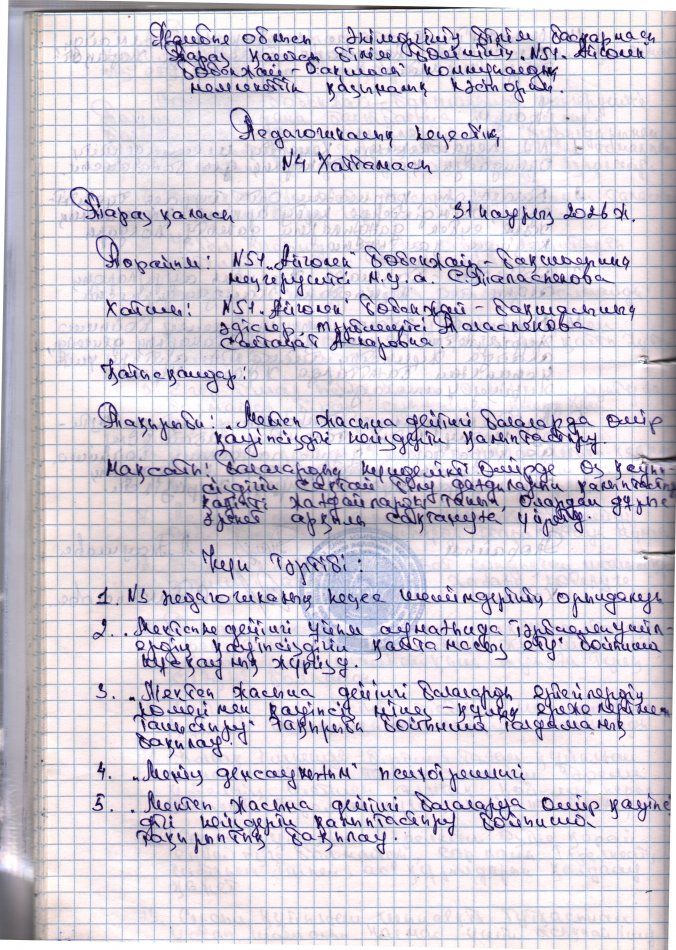 Жамбыл облысы әкімдігінің білім басқармасы
Тараз қаласы білім бөлімінің „N51 „Айгөлек"
бөбекжай - бақшасы" коммуналдық
мемлекеттік қазыналық кәсіпорны.
Педагогикалық кеңестің
N4 Хаттамасы
Тараз қаласы 31 наурыз 2026 ж.
Төрайым: N51 „Айгөлек" бөбекжай - бақшасының
меңгерушісі м.у.а. С.Таласпекова
Хатшы: N51 „Айгөлек" бөбекжай - бақшасының
әдіскер, тәрбиешісі Таласпекова
Салтанат Аскаровна.
Қатысқандар:
Тақырыбы: „Мектеп жасына дейінгі балаларда өмір
қауіпсіздігі негіздерін қалыптастыру.
Мақсаты: Балалардың күнделікті өмірде өз қауіп-
сіздігін сақтай білу дағдыларын қалыптастыру
қауіпті жағдайларды танып, олардан дұрыс
әрекет арқылы сақтануға үйрету.
Күн тәртібі:
1. N3 педагогикалық кеңес шешімдерінің орындалуы
2. „Мектепке дейінгі ұйым аумағында тәрбиеленушіл-
ердің қауіпсіздігін қамтамасыз ету" бойынша
нұсқаулық жүргізу.
3. „Мектеп жасына дейінгі балаларды ертегілердің
көмегімен қауіпсіз мінез - құлық ережелерімен
таныстыру" тақырыбы бойынша талдамалық
бақылау.
4. „Менің денсаулығым" психотренингі
5. „Мектеп жасына дейінгі балаларда өмір қауіпсі
здігі негіздерін қалыптастыру бойынша
тақырыптық бақылау.